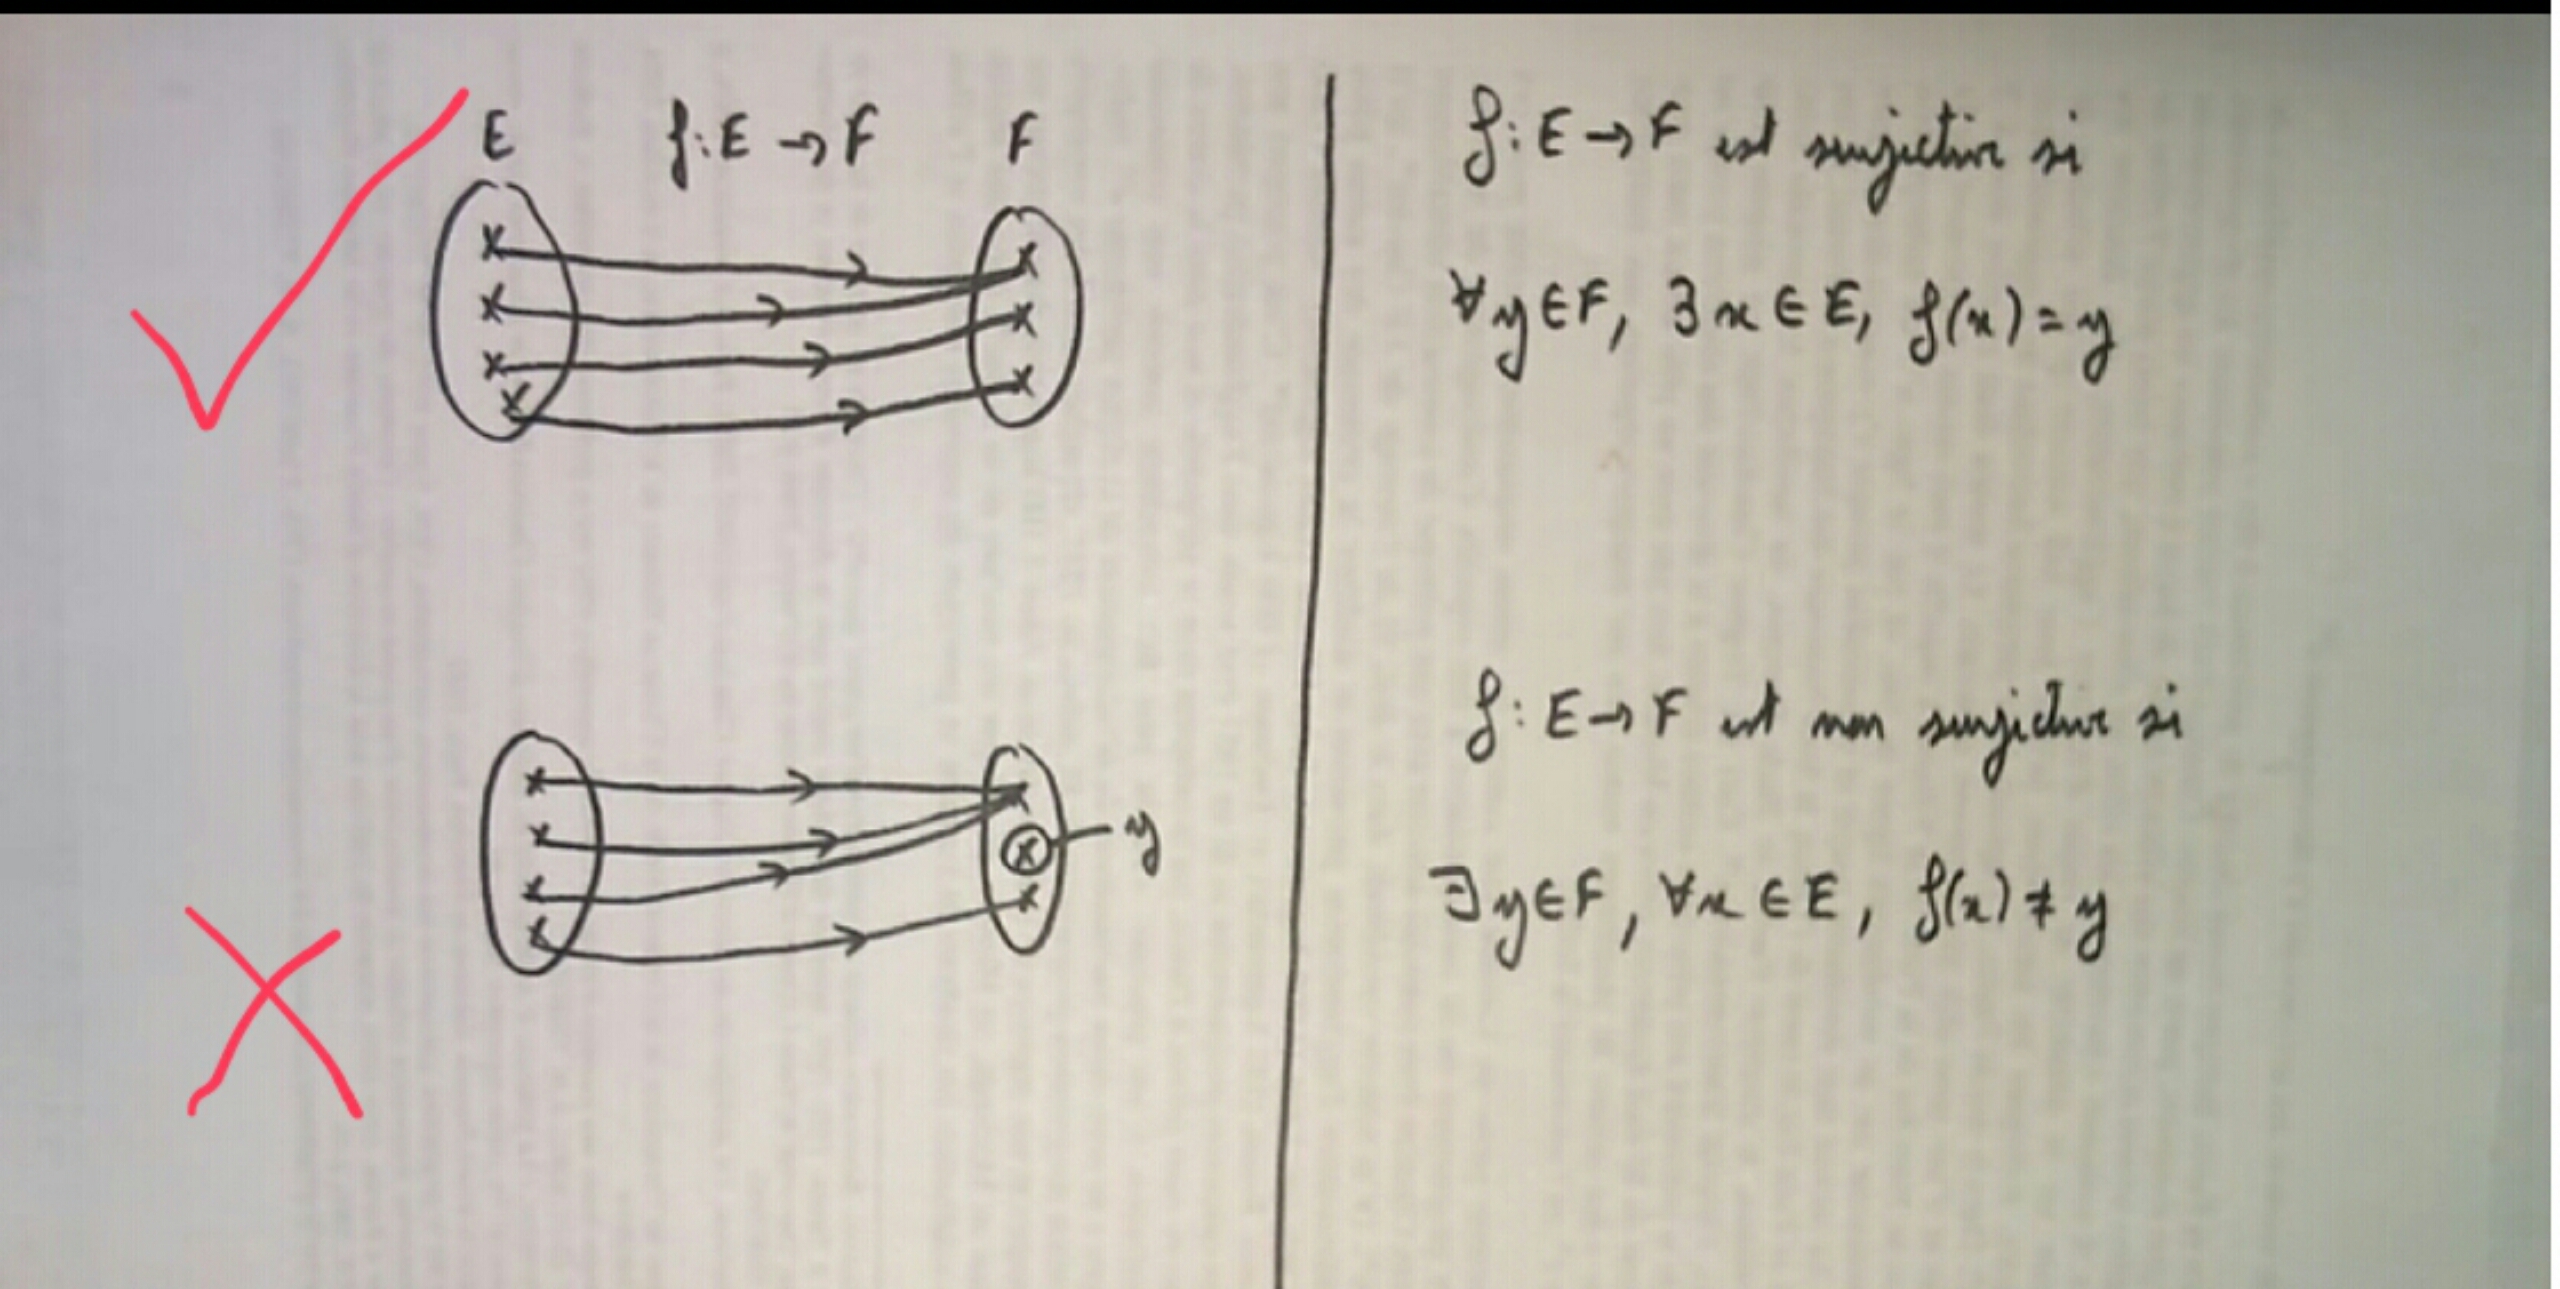 E f: E → F F
f: E → F est surjective si
∀ y ∈ F, ∃ x ∈ E, f(x) = y
f: E → F est non surjective si
y
∃ y ∈ F, ∀ x ∈ E, f(x) ≠ y